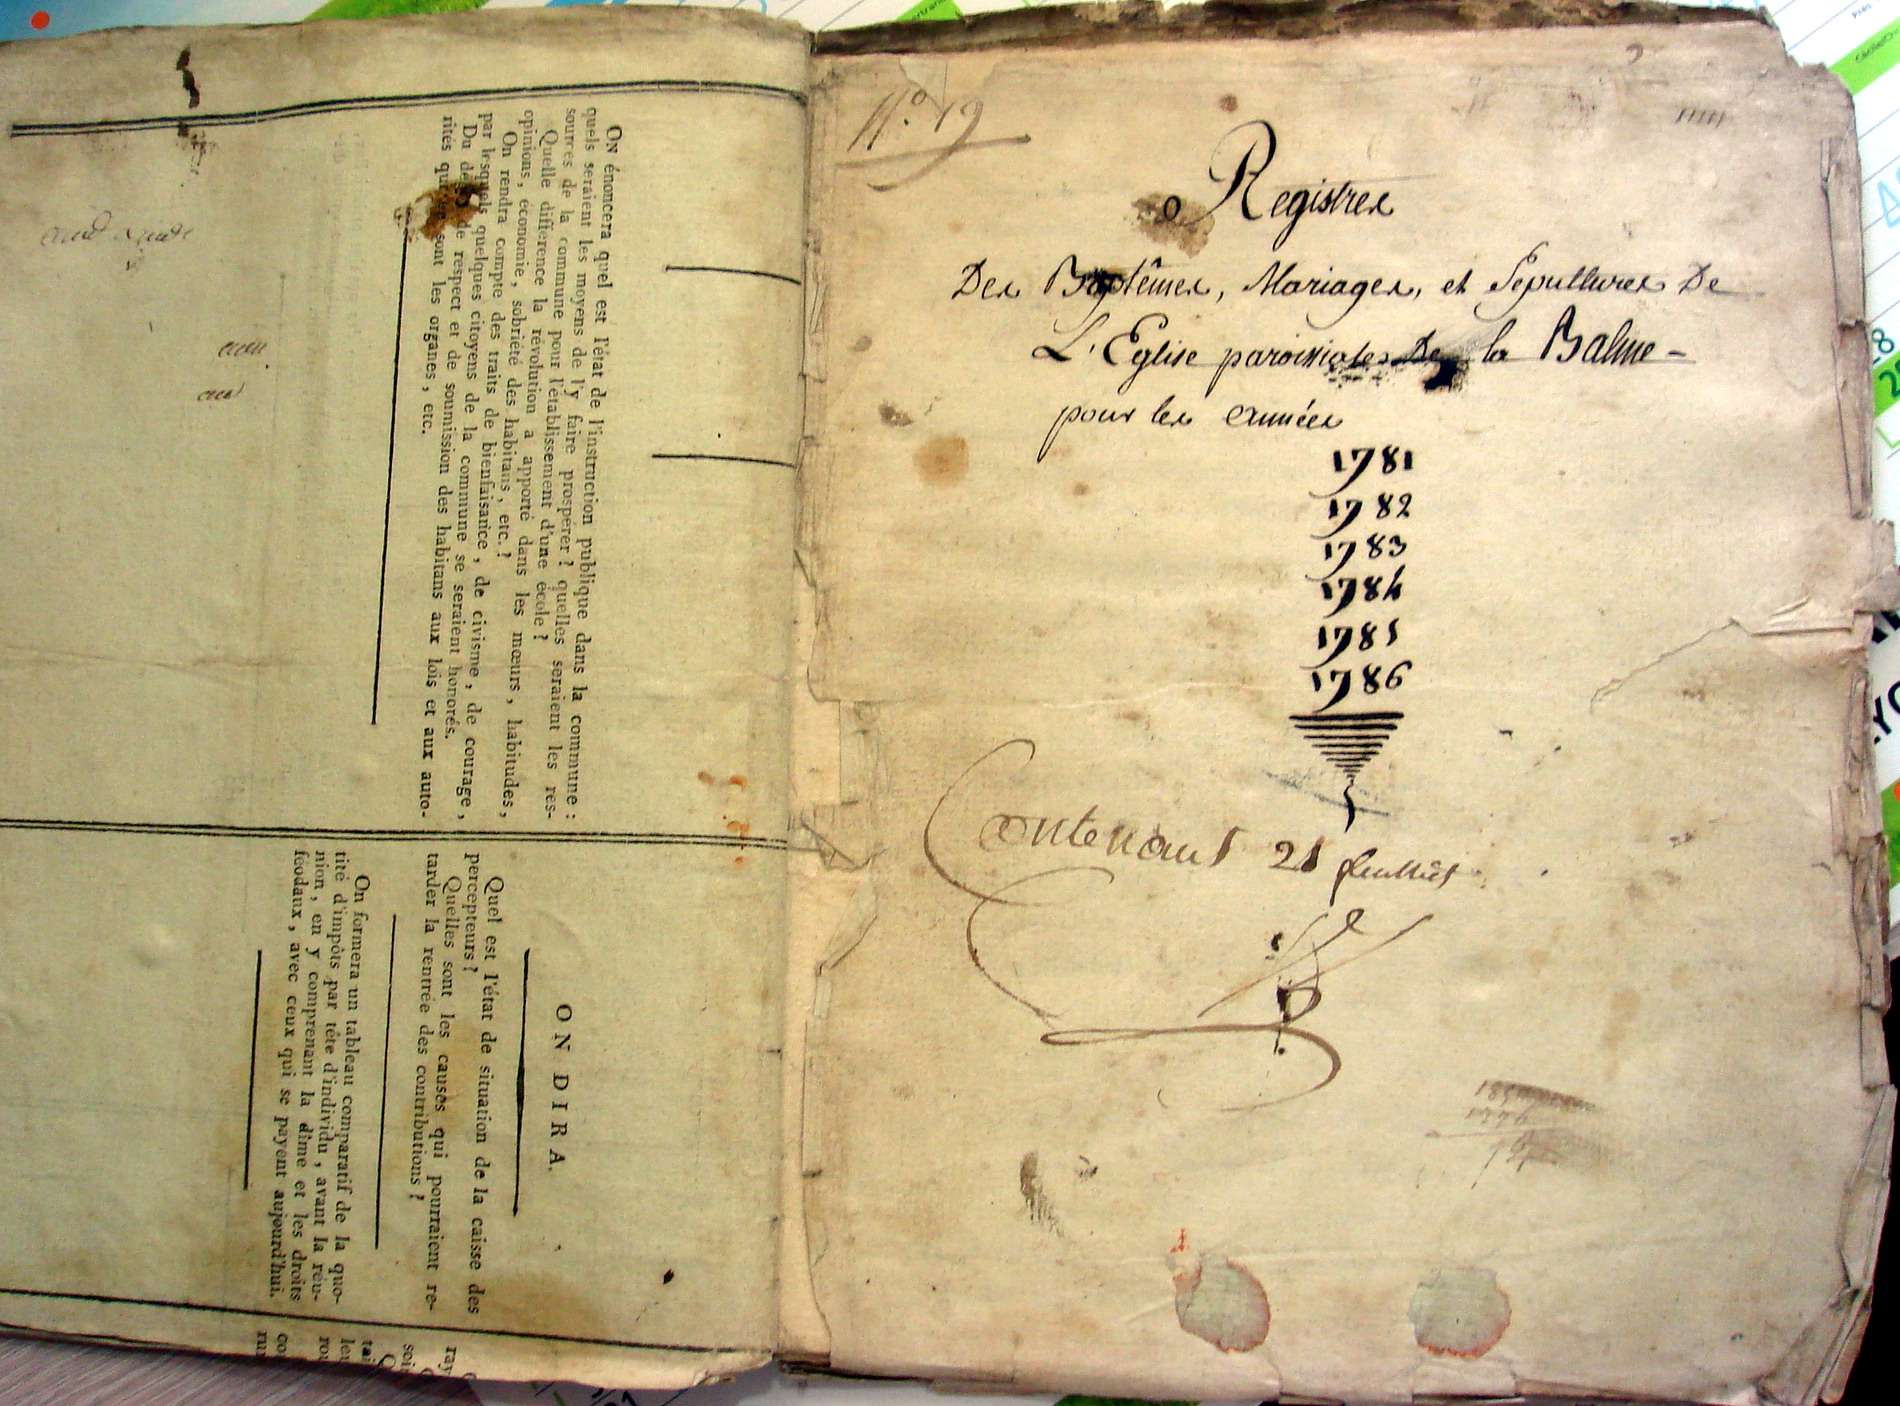 On énoncera quel est l'état de l'instruction publique dans la commune :
quels seraient les moyens de l'y faire prospérer ? quelles seraient les res-
sources de la commune pour l'établissement d'une école ?
Quelle différence la révolution a apporté dans les mœurs, habitudes,
opinions, économie, sobriété des habitans, etc. ?
On rendra compte des traits de bienfaisance, de civisme, de courage,
par lesquels quelques citoyens de la commune se seraient honorés.
Du de respect et de soumission des habitans aux lois et aux auto-
rités qui sont les organes, etc.
ON DIRA.
Quel est l'état de situation de la caisse des
percepteurs ?
Quelles sont les causes qui pourraient re-
tarder la rentrée des contributions ?
On formera un tableau comparatif de la quo-
tité d'impôts par tête d'individu, avant la révo-
nion, en y comprenant la dîme et les droits
féodaux, avec ceux qui se payent aujourd'hui.
N.° 19
Registres
Des Baptêmes, Mariages, et Sépultures De
L'Eglise paroissiales De la Balme -
pour les années
1781
1782
1783
1784
1785
1786
Contenant 21 feuillets